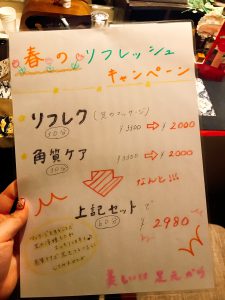 春のリフレッシュ
キャンペーン
リフレク(足つぼマッサージ)
30分
¥3300 ⇨ ¥2000
角質ケア
30分
¥3300 ⇨ ¥2000
なんと!!!
上記セットで
60分
¥2980
美しいは足元から